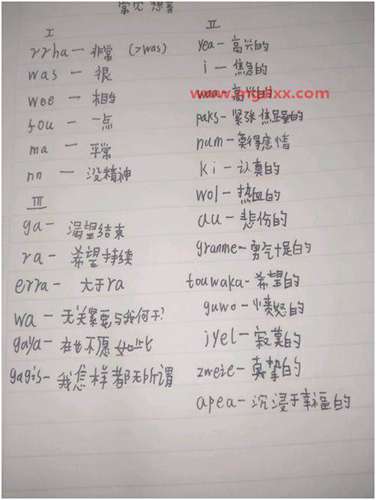 常见
I
rrha — 非常 (>was)
was — 很
wee — 相当
fou — 一点
ma — 平常
nn — 没精神
III
ga — 渴望结束
ra — 希望持续
erra — 大于ra
wa — 无关紧要与我何干?
gaya — 在也不愿如此
gagis — 我怎样都无所谓
II
yea — 高兴的
i — 焦急的
高兴的
paks — 紧张 焦虑的
num — 莫得感情
ki — 认真的
wol — 热血的
au — 悲伤的
granme — 勇气十足的
touwaka — 希望的
guwo — 愤怒的
iyel — 寂寞的
zweie — 真挚的
apea — 沉浸于幸福的